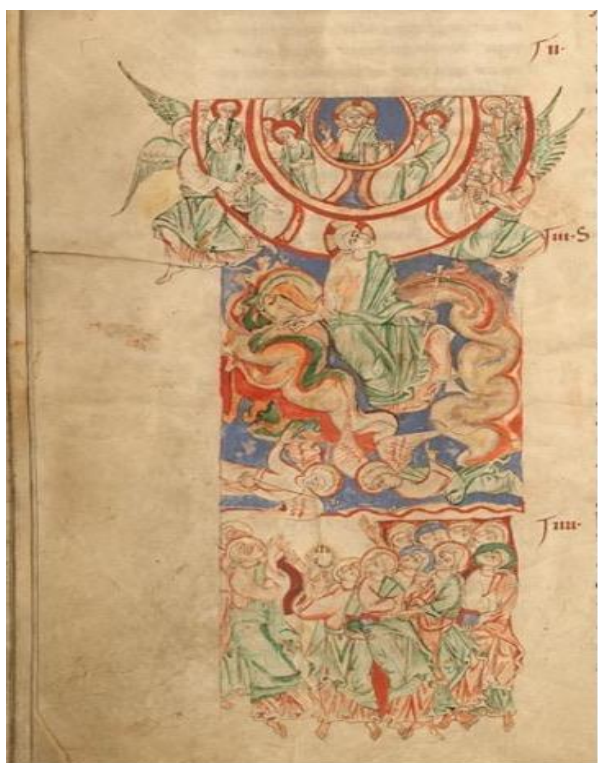 T II·
T III· S
T IIII·